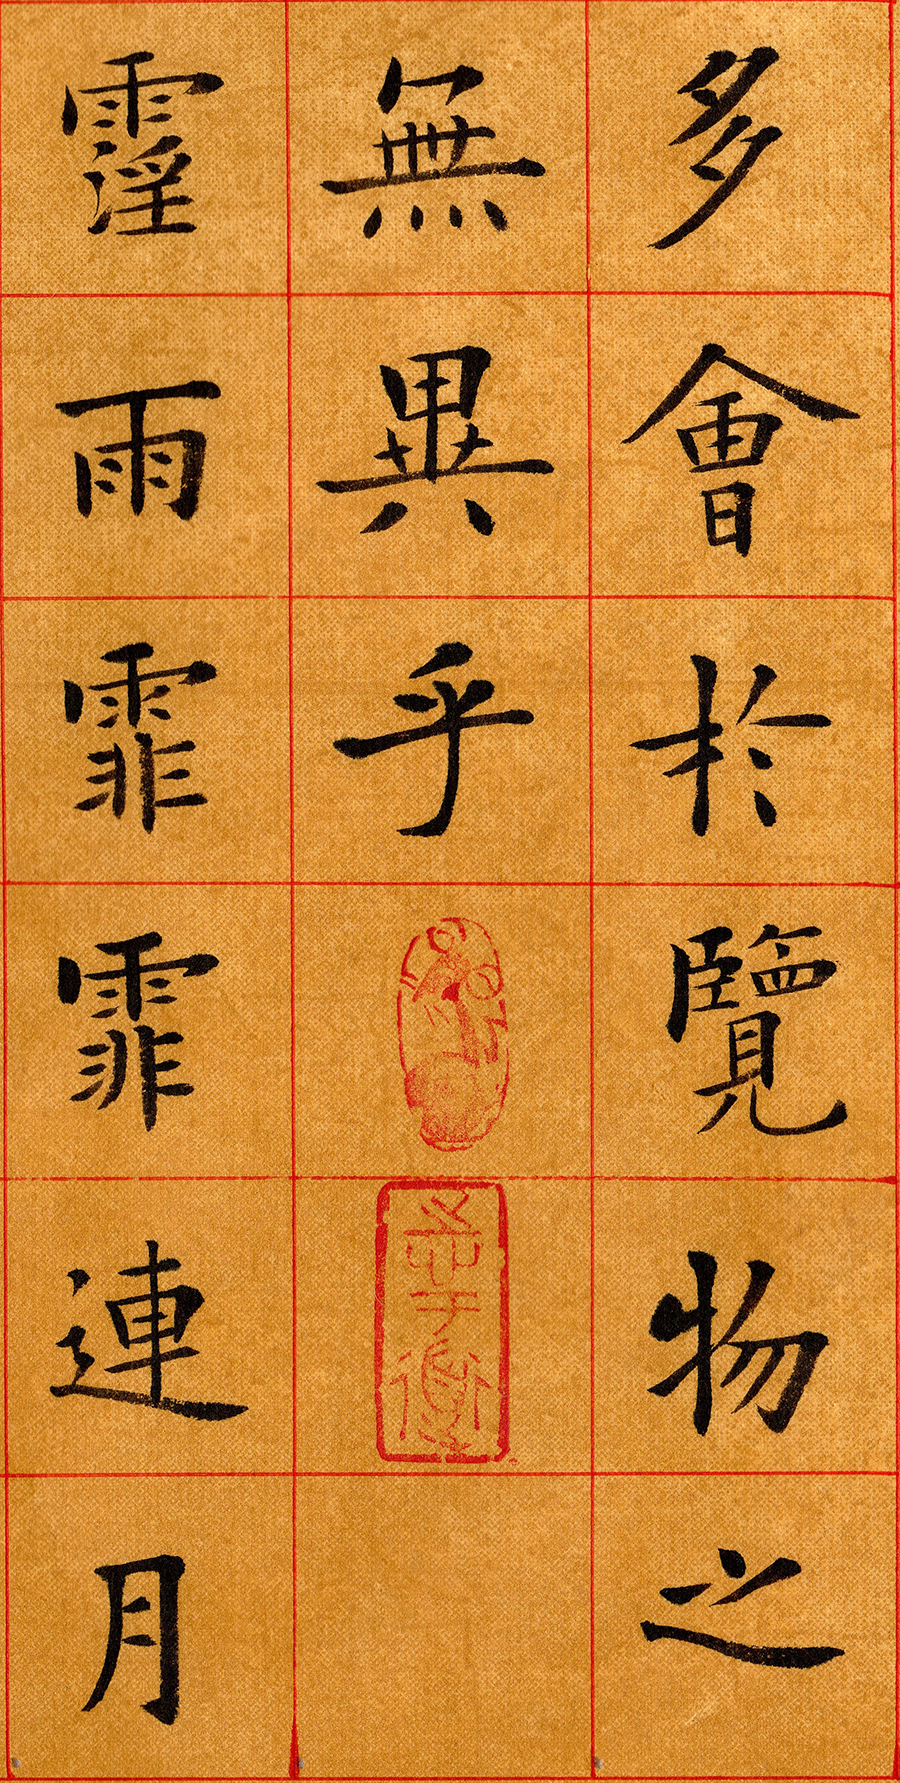 多會於覽物之
無異乎
霪雨霏霏連月